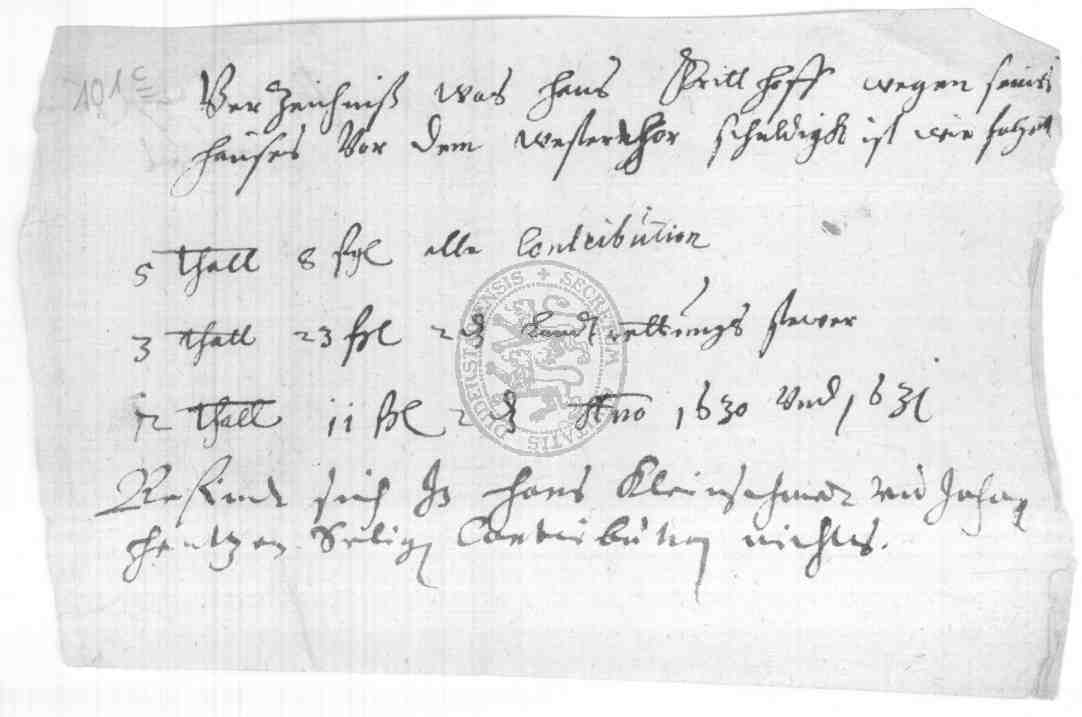 1013
Verzeichniß was Hans Britthoff wegen seines
hauses Vor dem westerthor schuldigk ist wie folget
5 thall 8 ßgl alte Contribution
3 thall 23 ßgl 2 ₰ Landtrettungs stewer
12 thall 11 ßgl 2 ₰ Anno 1630 Und 1631
sich In Hans Kleinschmidt und
Hentzen Selig Contribution nichts.
SECRETUM DUDERSTADENSIS